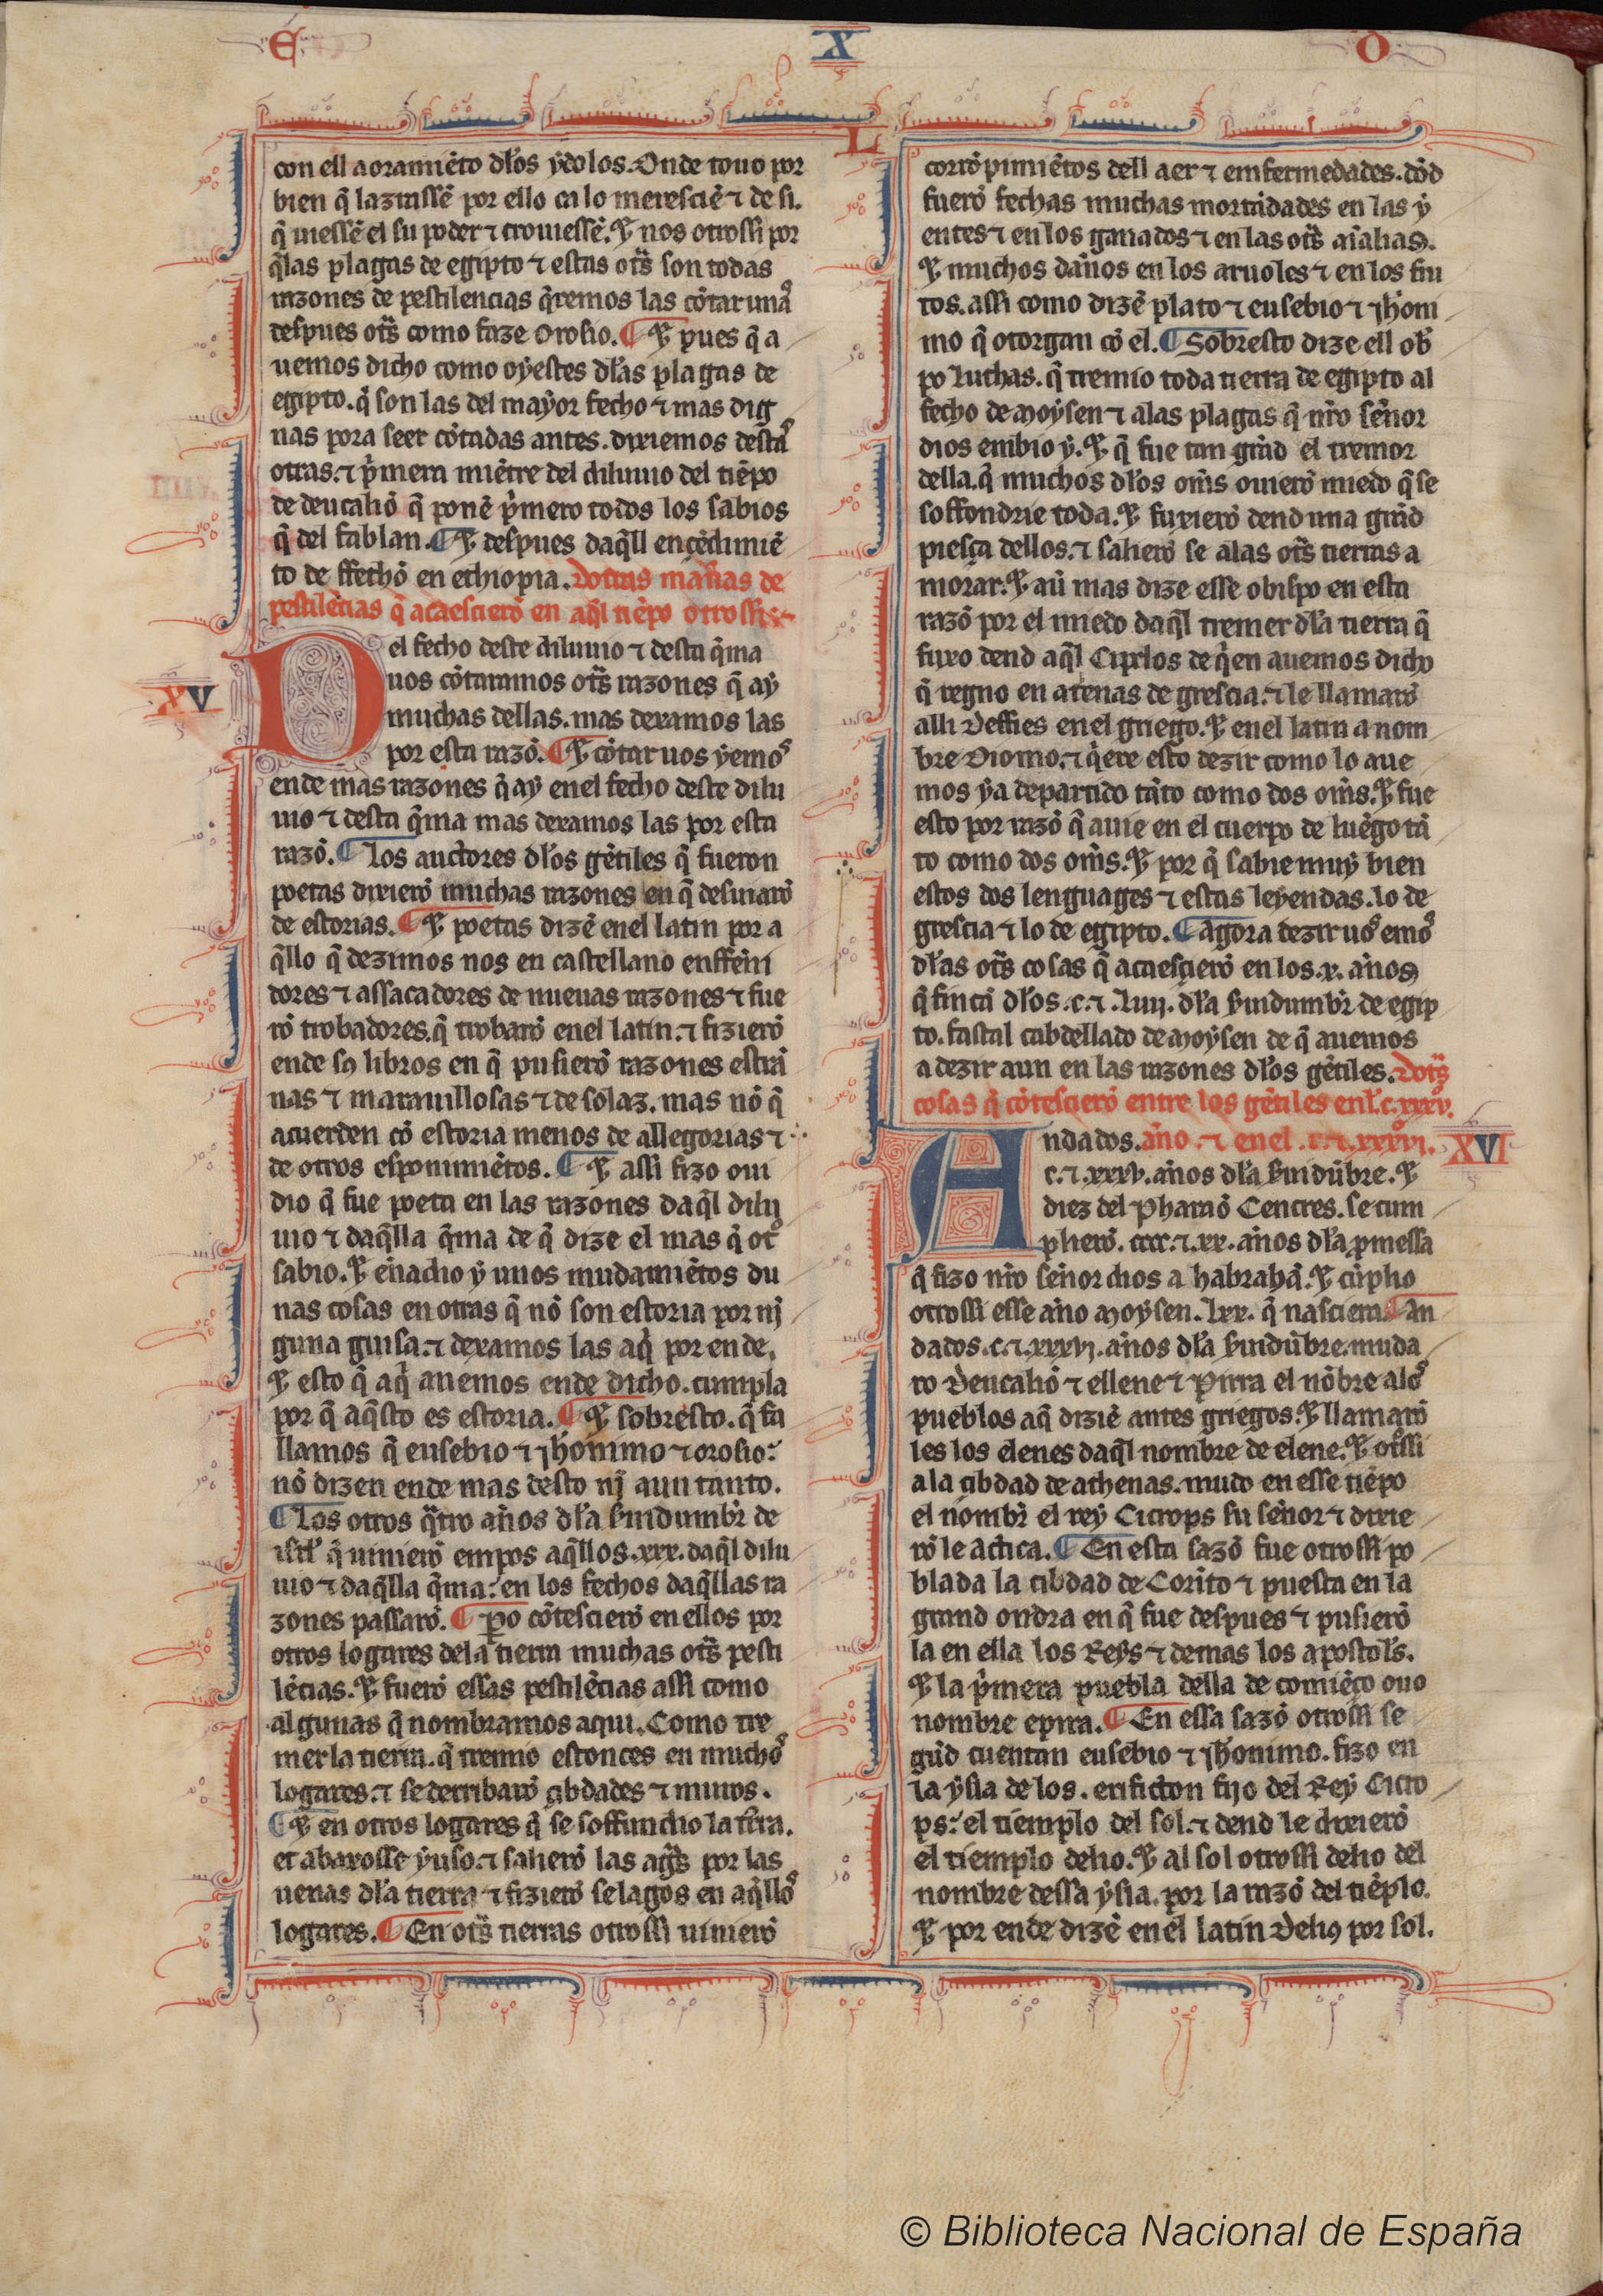 E X O
L
con ell aoramiẽto dl̃os ydolos. Onde touo por
bien q̃ lazrassẽ por ello ca lo meresciẽ ⁊ de si.
q̃ uiessẽ el su poder ⁊ crouiessẽ. E nos otrossi por
q̃ las plagas de egipto ⁊ estas otr̃s son todas
razones de pestilencias q̃remos las cõtar unaˢ
despues otr̃s como faze Orosio. ¶ E pues q̃ a
uemos dicho como oyestes dl̃as plagas de
egipto. q̃ son las del mayor fecho ⁊ mas dig
nas pora seer cõtadas antes. dixiemos destaˢ
otras. ⁊ p̃mera miẽtre del diluuio del tiẽpo
de deucaliõ q̃ ponẽ p̃mero todos los sabios
q̃ del fablan. ¶ E despues daq̃ll encẽdimiẽ
to de ffechõ en ethiopia. Dotras mañas de
pestilẽcias q̃ acaescierõ en aq̃l tiẽpo otrossi.
XV
Del fecho deste diluuio ⁊ desta q̃ma
uos cõtaramos otr̃s razones q̃ ay
muchas dellas. mas dexamos las
por esta razõ. ¶ E cõtar uos yemoˢ
ende mas razones q̃ ay enel fecho deste dilu
uio ⁊ desta q̃ma mas dexamos las por esta
razõ. ¶ Los auctores dl̃os gẽtiles q̃ fueron
poetas dixierõ muchas razones en q̃ desuiarõ
de estorias. ¶ E poetas dizẽ enel latin por a
q̃llo q̃ dezimos nos en castellano enffeñi
dores ⁊ assacadores de nueuas razones ⁊ fue
rõ trobadores. q̃ trobarõ enel latin. ⁊ fizierõ
ende sꝯ libros en q̃ pusierõ razones estrã
nas ⁊ marauillosas ⁊ de solaz. mas nõ q̃
acuerden cõ estoria menos de allegorias ⁊
de otros esponimiẽtos. ¶ E assi fizo oui
dio q̃ fue poeta en las razones daq̃l dilu
uio ⁊ daq̃lla q̃ma de q̃ dize el mas q̃ ot̃º
sabio. E enadio y unos mudamiẽtos du
nas cosas en otras q̃ nõ son estoria por nĩ
guna guisa. ⁊ dexamos las aq̃ por ende.
E esto q̃ aq̃ auemos ende dicho. cumpla
por q̃ aq̃sto es estoria. ¶ E sobresto. q̃ fa
llamos q̃ eusebio ⁊ jh̃onimo ⁊ orosio:
nõ dizen ende mas desto nĩ aun tanto.
¶ Los otros q̃tro años dl̃a Suidumbr̃ de
isrl̃ q̃ uinierõ empos aq̃llos .xxx. daq̃l dilu
uio ⁊ daq̃lla q̃ma: en los fechos daq̃llas ra
zones passarõ. ¶ Ꝑo cõtescierõ en ellos por
otros logares dela tierra muchas otr̃s pesti
lẽcias. E fuerõ essas pestilẽcias assi como
algunas q̃ nombramos aqui. Como tre
mer la tierra. q̃ tremio estonces en muchoˢ
logares. ⁊ se derribarõ cibdades ⁊ muros.
¶ E en otros logares q̃ se soffundio la tr̃ra.
et abaxosse yuso. ⁊ salierõ las agr̃s por las
uenas dl̃a tierra ⁊ fizierõ se lagos en aq̃lloˢ
logares. ¶ En otr̃s tierras otrossi uinierõ
corrõpimiẽtos dell aer ⁊ enfermedades. dõd
fuerõ fechas muchas mortãdades en las y
entes ⁊ en los ganados ⁊ en las otr̃s aĩalias.
E muchos daños en los aruoles ⁊ en los fru
tos. assi como dizẽ plato ⁊ eusebio ⁊ jh̃oni
mo q̃ otorgan cõ el. ¶ Sobresto dize ell ob̃
po luchas. q̃ tremio toda tierra de egipto al
fecho de moysen ⁊ alas plagas q̃ nr̃o señor
dios embio y. E q̃ fue tan grãd el tremor
della. q̃ muchos dl̃os om̃s ouierõ miedo q̃ se
soffondrie toda. E fuxierõ dend una grãd
piesça dellos. ⁊ salierõ se alas otr̃s tierras a
morar. E aũ mas dize esse obispo en esta
razõ por el miedo daq̃l tremer dl̃a tierra q̃
fuxo dend aq̃l Ciprlos de q̃en auemos dicho
q̃ regno en atenas de grescia. ⁊ le llamarõ
alli Deffies en el griego. E en el latin a nom
bre Diomo. ⁊ q̃ere esto dezir como lo aue
mos ya departido tãto como dos om̃s. E fue
esto por razõ q̃ auie en el cuerpo de luẽgo tã
to como dos om̃s. E por q̃ sabie muy bien
estos dos lenguages ⁊ estas leyendas. lo de
grescia ⁊ lo de egipto. ¶ agora dezir uoˢ emoˢ
dl̃as otr̃s cosas q̃ acaescierõ en los .x. años
q̃ fincã dl̃os .c. ⁊ .luij. dl̃a Suidumbr̃ de egip
to. fastal cabdellado de moysen de q̃ auemos
a dezir aun en las razones dl̃os gẽtiles. Dotr̃s
cosas q̃ cõtescierõ entre los gẽtiles enl .c.xxxv.
Andados. año. ⁊ en el .c. ⁊ .xxxvi. XVI
c. ⁊ .xxxv. años dl̃a Suidũbre. E
diez del Pharaõ Cencres. se cum
plierõ. cccc. ⁊ .xx. años dl̃a ꝓmessa
q̃ fizo nr̃o señor dios a habrahã. E cũplio
otrossi esse año moysen .lxx. q̃ nasciera. ¶ An
dados .c. ⁊ .xxxvj. años dl̃a Suidũbre. muda
ro Deucaliõ ⁊ ellene ⁊ Pirra el nõbre aloˢ
pueblos aq̃ diziẽ antes griegos. E llamarõ
les los elenes daq̃l nombre de elene. E ot̃ssi
ala cibdad de athenas. mudo en esse tiẽpo
el nombr̃ el rey Cicrops su señor ⁊ dixie
rõ le actica. ¶ En esta sazõ fue otrossi po
blada la cibdad de Corito ⁊ puesta en la
grand ondra en q̃ fue despues ⁊ pusierõ
la en ella los Reys ⁊ demas los apostols̃.
E la p̃mera puebla della de comiẽço ouo
nombre epira. ¶ En essa sazõ otrossi se
gũd cuentan eusebio ⁊ jh̃onimo. fizo en
la ysla de los. erificton fijo del Rey Cicro
ps: el tiemplo del sol. ⁊ dend le dixierõ
el tiemplo delio. E al sol otrossi delio del
nombre dessa ysla. por la razõ del tiẽplo.
E por ende dizẽ en el latin Deliꝯ por sol.
© Biblioteca Nacional de España